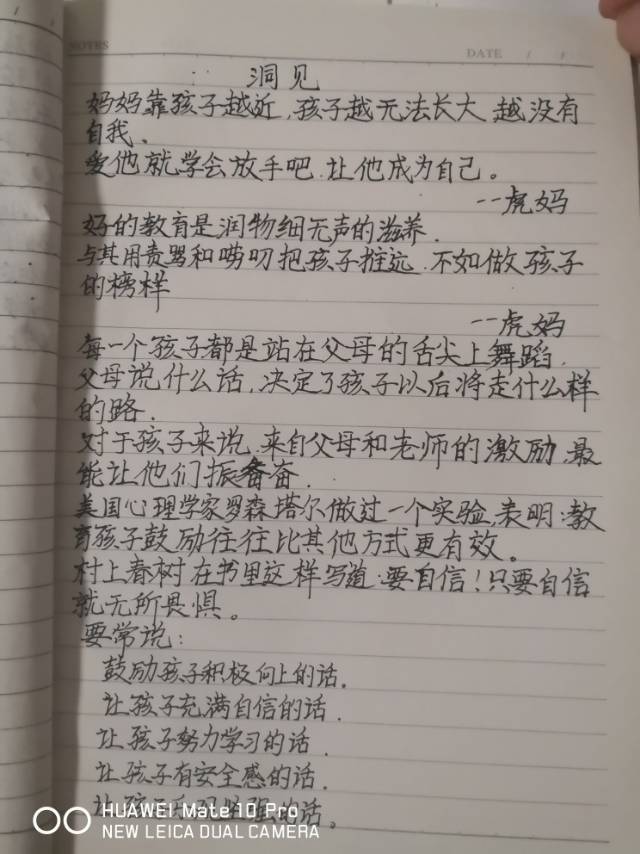 NOTES
DATE / /
洞见
妈妈靠孩子越近,孩子越无法长大,越没有
自我、
爱他就学会放手吧.让他成为自己。
--虎妈
好的教育是润物细无声的滋养.
与其用责骂和唠叨把孩子推远.不如做孩子
的榜样
--虎妈
每一个孩子都是站在父母的舌尖上舞蹈.
父母说什么话,决定了孩子以后将走什么样
的路.
对于孩子来说.来自父母和老师的激励.最
能让他们振奋.
美国心理学家罗森塔尔做过一个实验.表明:教
育孩子鼓励往往比其他方式更有效。
村上春树在书里这样写道:要自信!只要自信
就无所畏惧。
要常说:
鼓励孩子积极向上的话.
让孩子充满自信的话.
让孩子努力学习的话.
让孩子有安全感的话.
让孩 坚强的话。
HUAWEI Mate10 Pro
NEW LEICA DUAL CAMERA